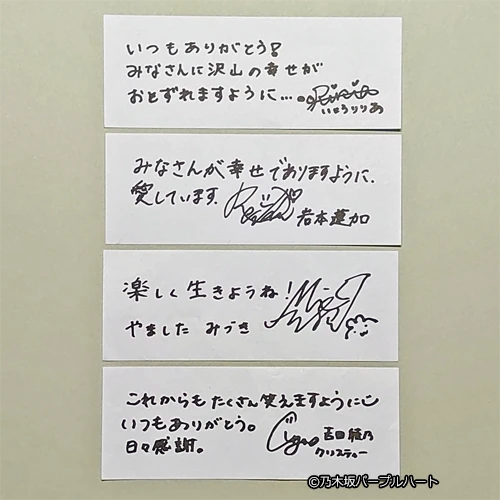 いつもありがとう!
みなさんに沢山の幸せが
おとずれますように...
いとうりりあ
みなさんが幸せでありますように、
愛しています。
岩本蓮加
楽しく生きようね!
やました みづき
これからも たくさん笑えますように
いつもありがとう。
日々感謝。
吉田綾乃
クリスティー
©乃木坂パープルハート